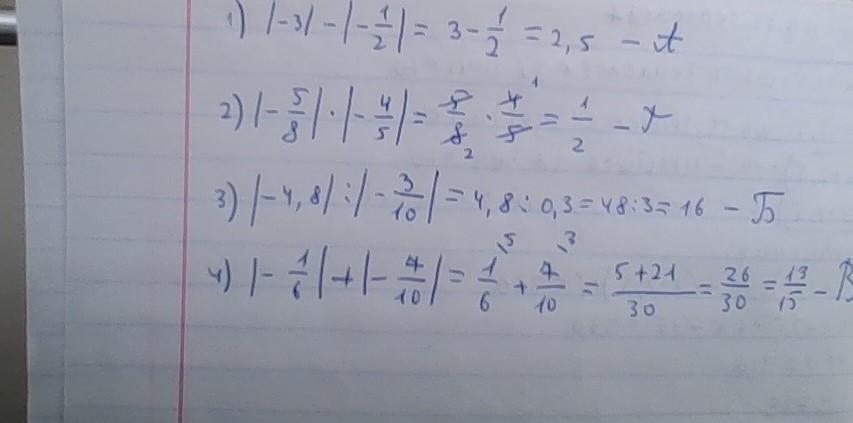 1) |-3| - |-1/2| = 3 - 1/2 = 2,5 - А
2) |-5/8| · |-4/5| = 5/8 · 4/5 = 1/2 - Г
3) |-4,8| : |-3/10| = 4,8 : 0,3 = 48 : 3 = 16 - Б
4) |-1/6| + |-7/10| = 1/6 + 7/10 = 5+21/30 = 26/30 = 13/15 - В